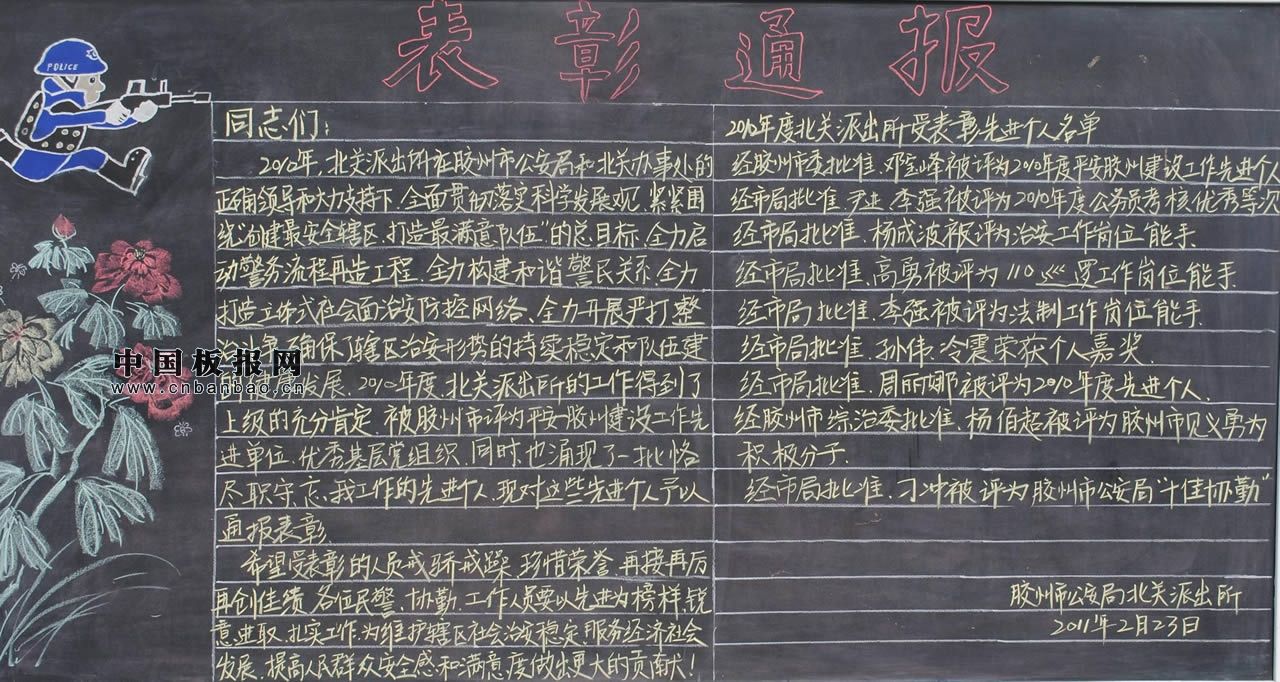 表彰通报
POLICE
同志们:
2010年,北关派出所在胶州市公安局和北关办事处的
正确领导和大力支持下,全面贯彻落实科学发展观,紧紧围
绕"创建最安全辖区,打造最满意队伍"的总目标,全力启
动警务流程再造工程,全力构建和谐警民关系,全力
打造立体式社会面治安防控网络、全力开展严打整
确保了辖区治安形势的持续稳定和队伍建
发展,2010年度,北关派出所的工作得到了
上级的充分肯定,被胶州市评为平安胶州建设工作先
进单位、优秀基层党组织,同时,也涌现了一批恪
尽职守,忘我工作的先进个人,现对这些先进个人予以
通报表彰.
希望受表彰的人员戒骄戒躁,珍惜荣誉,再接再厉
再创佳绩,各位民警、协勤、工作人员要以先进为榜样,锐
意进取,扎实工作,为维护辖区社会治安稳定,服务经济社会
发展,提高人民群众安全感和满意度做出更大的贡献!
2010年度北关派出所受表彰先进个人名单
经胶州市委批准,邓登峰被评为2010年度平安胶州建设工作先进个人
经市局批准,尹亚、李强被评为2010年度公务员考核优秀等次
经市局批准,杨成波被评为治安工作岗位能手.
经市局批准,高勇被评为110巡逻工作岗位能手.
经市局批准,李强被评为法制工作岗位能手.
经市局批准,孙伟、冷震荣获个人嘉奖.
经市局批准,周丽娜被评为2010年度先进个人.
经胶州市综治委批准,杨佰超被评为胶州市见义勇为
积极分子.
经市局批准,刁冲被评为胶州市公安局"十佳协勤"
胶州市公安局北关派出所
2011年2月23日
中国板报网
www.cnbanbao.cn